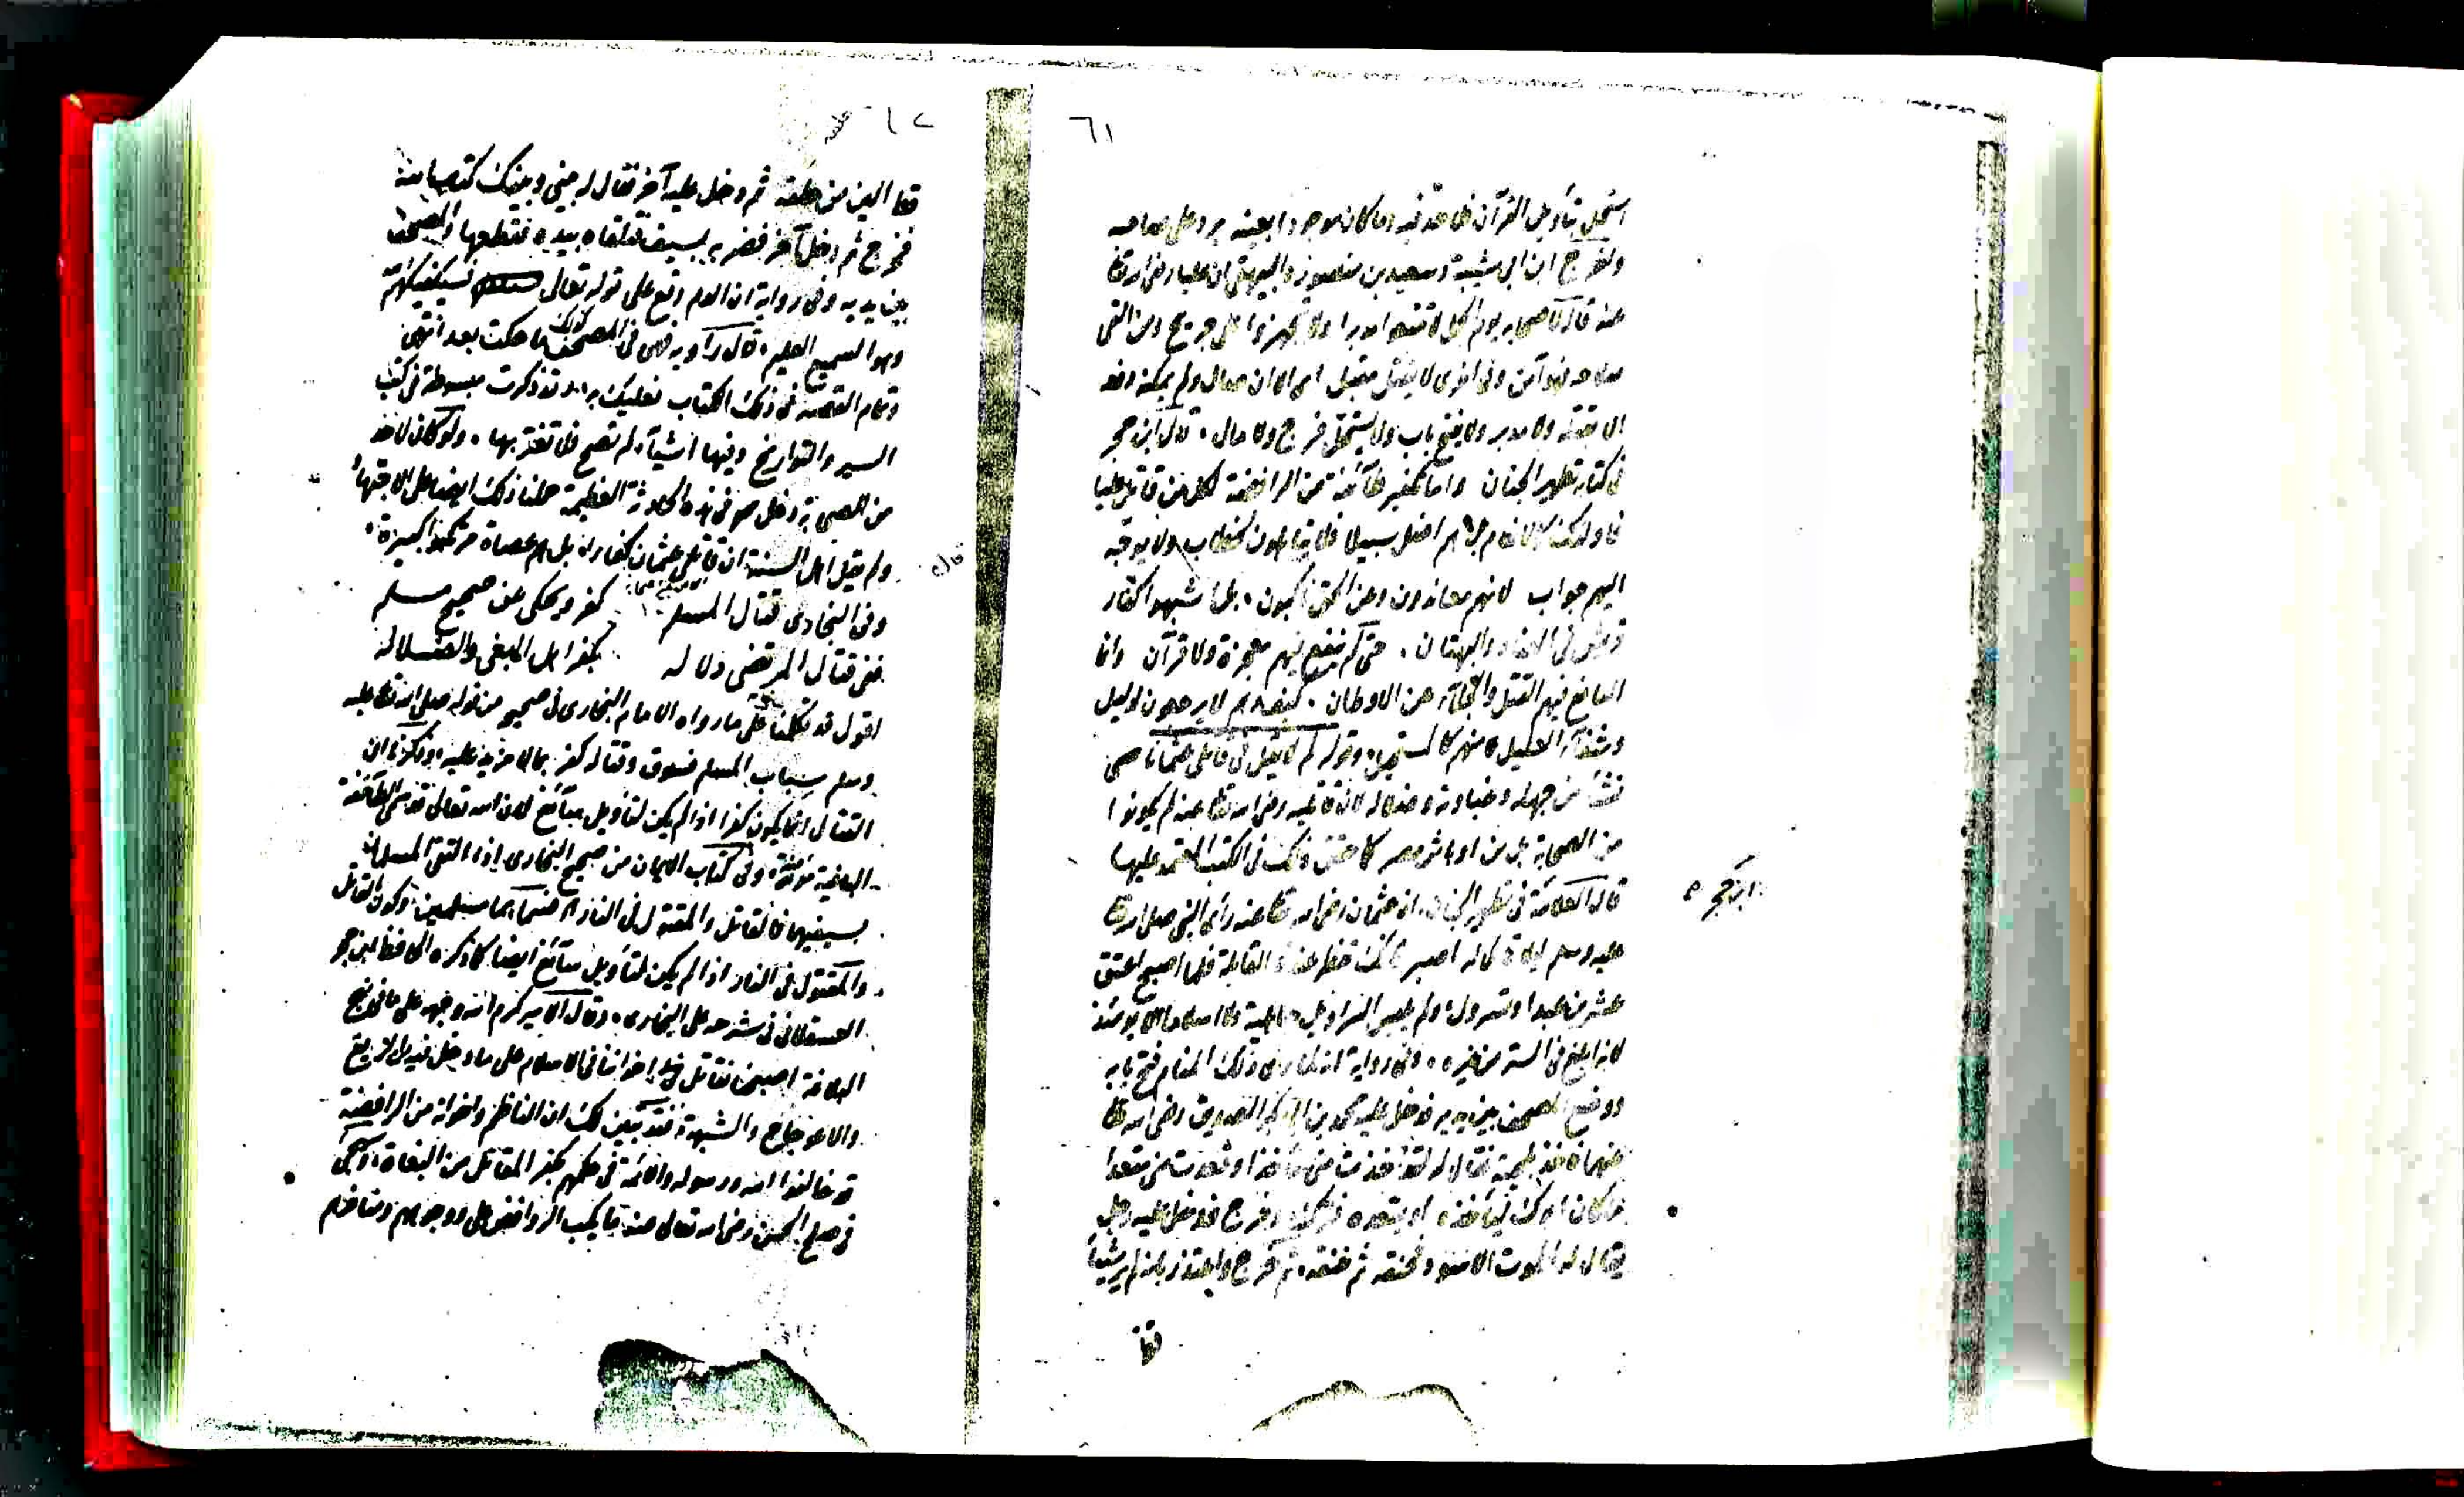 ٦١
استحل بتأويل القرآن فلا حد فيه وما كان موجودا بعينه يرد على صاحبه
واخرج ابن ابي شيبة وسعيد بن منصور والبيهقي ان عليا رضي الله تعا
عنه قال لاصحابه يوم الجمل لا تتبعوا مدبرا ولا تجهزوا على جريح ومن القى
سلاحه فهو آمن وفي اخرى لا يقتل مقبل اي الا ان صال ولم يمكن دفعه
الا بقتله ولا مدبر ولا يفتح باب ولا يستحل فرج ولا مال، قال ابن حجر
في كتابه تطهير الجنان واما تكفير طائفة من الرافضة لكل من قاتل عليا
فاولئك كالانعام بل هم اضل سبيلا فلا يتأهلون لخطاب ولا يوجه
اليهم جواب لانهم معاندون وعن الحق ناكبون، بل اشبهوا كفار
قريش في العناد والبهتان، حتى لم تنفع فيهم معجزة ولا قرآن وانما
النافع فيهم القتل والجلاء عن الاوطان، كيف وهم لا يرجعون لدليل
وشفاء العليل منهم كالمستحيل، وقوله لم لا يقل في قاتلي عثمانا عصى
نشأ من جهله وغباوته وضلاله لان قاتليه رضي الله تعا عنه لم يكونوا
من الصحابة بل من اوباش مصر كما حقق ذلك في الكتب المعتمد عليها
قال العلامة في تطهير الجنان، ان عثمان رضي الله تعا عنه رأى النبي صلى الله تعا
ابن حجر
عليه وسلم ليلا قائلا له اصبر فانك تفطر عندنا القابلة فلما اصبح اعتق
عشرين عبدا وتسرول، ولم يلبس السراويل جاهلية ولا اسلاما الا يومئذ
لانه ابلغ في الستر من غيره، وفي رواية انه لما رأى ذلك المنام فتح بابه
ووضع المصحف بين يديه فدخل عليه محمد بن ابي بكر الصديق رضي الله تعا
عنهما فاخذ بلحيته فقال له لقد اخذت مني مأخذا وقعدت مني مقعدا
ما كان ابوك ليأخذه او يقعده فتركه وخرج فدخل عليه رجل
يقال له الموت الاسود فخنقه ثم خنقه، ثم خرج واعتذر بانه لم ير شيئا
قط
٦٢
قط الين من حلقه ثم دخل عليه آخر فقال له بيني وبينك كتاب الله
فخرج ثم دخل آخر فضربه بسيف فتلقاه بيده فقطعها والمصحف
بين يديه وفي رواية ان الدم وقع على قوله تعالى فسيكفيكهم الله
وهو السميع العليم، قال راويه فهي في المصحف كذلك ما حكت بعد انتهى
وتمام القصة في ذلك الكتاب فعليك به، وقد ذكرت مبسوطة في كتب
السير والتواريخ وفيها اشياء لم تصح فلا تغتر بها، ولو كان لاحد
من الصحابة دخل ما في هذه الحادثة العظيمة حملنا ذلك ايضا على الاجتهاد
ولم يقل اهل السنة ان قاتلي عثمان كفار، بل هم عصاة مرتكبوا كبيرة،
قال
وفي البخاري قتال المسلم كفر ويحكى عن صحيح مسلم
ففي قتال المرتضى دلاله بكفر اهل البغي والضلاله
اقول قد تكلمنا على ما رواه الامام البخاري في صحيحه من قوله صلى الله تعا عليه
وسلم سباب المسلم فسوق وقتاله كفر بما لا مزيد عليه، وذكرنا ان
القتال انما يكون كفرا اذا لم يكن لتأويل سائغ لان الله تعالى قد سمى الطائفة
الباغية مؤمنة، وفي كتاب الايمان من صحيح البخاري اذا التقى المسلمان
بسيفيهما فالقاتل والمقتول في النار، فسماهما مسلمين، وكون القاتل
والمقتول في النار اذا لم يكن لتأويل سائغ ايضا كما ذكره الحافظ ابن حجر
العسقلاني في شرحه على البخاري، وقال الامير كرم الله وجهه على ما في نهج
البلاغة اصبحنا نقاتل اخواننا في الاسلام على ما دخل فيه من الزيغ
والاعوجاج والشبهة، فقد تبين لك ان الناظم واخوانه من الرافضة
قد خالفوا الله ورسوله والائمة في حكمهم بكفر المقاتل من البغاة، وسيجئ
في صلح الحسن رضي الله تعالى عنه ما يكب الروافض على وجوههم ومناخرهم